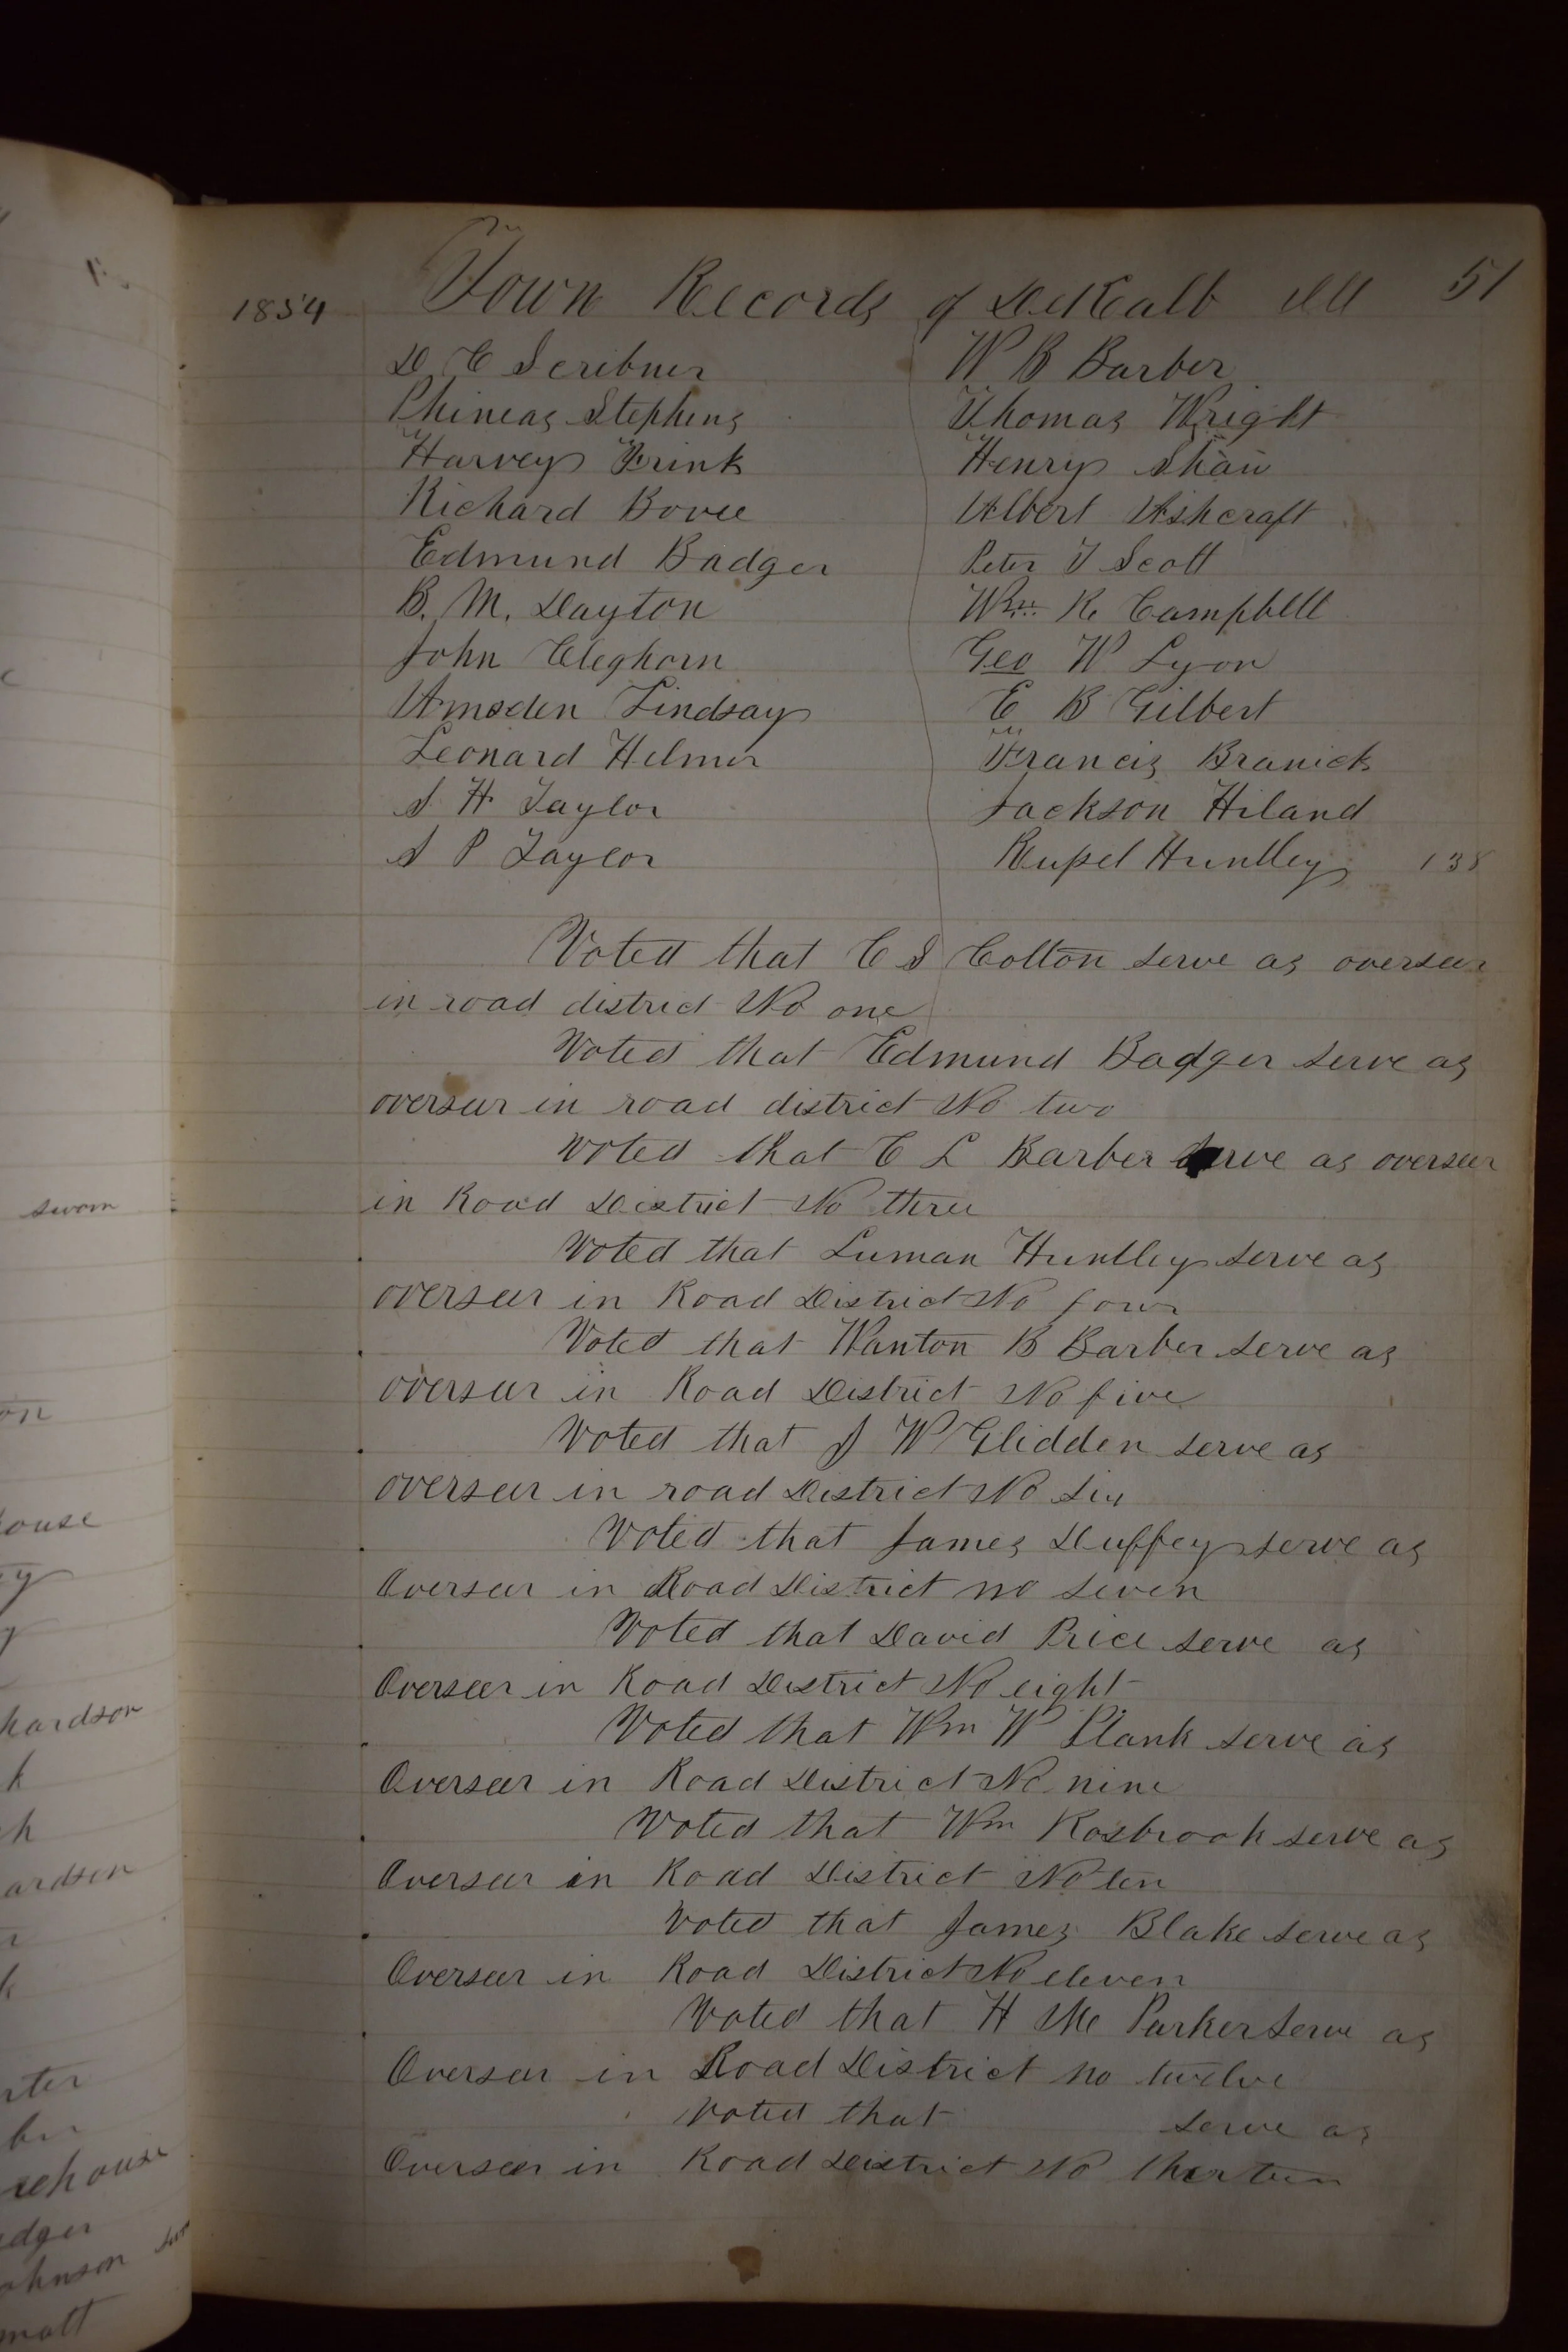 1854
Town Records of DeKalb Ill 51
D C Scribner W B Barber
Phineas Stephens Thomas Wright
Harvey Frink Henry Shaw
Richard Bovee Albert Ashcraft
Edmund Badger Peter T Scott
B. M. Dayton Wm R Campbell
John Cleghorn Geo W Lyon
Amsden Lindsay E B Gilbert
Leonard Helmer Francis Branick
S H Taylor Jackson Hiland
S P Taylor Russel Huntley 138
Voted that C S Colton serve as overseer
in road district No one
Voted that Edmund Badger serve as
overseer in road district No two
Voted that C L Barber serve as overseer
in Road District No three
Voted that Luman Huntley serve as
overseer in Road District No four
Voted that Wanton B Barber serve as
overseer in Road District No five
Voted that J W Glidden serve as
overseer in road District No six
Voted that James Duffey serve as
Overseer in Road District no seven
Voted that David Price serve as
Overseer in Road District No eight
Voted that Wm W Plank serve as
Overseer in Road District No nine
Voted that Wm Rosbrook serve as
Overseer in Road District No ten
Voted that James Blake serve as
Overseer in Road District No eleven
Voted that H Mc Parker serve as
Overseer in Road District no twelve
Voted that serve as
Overseer in Road District No thirteen
sworn